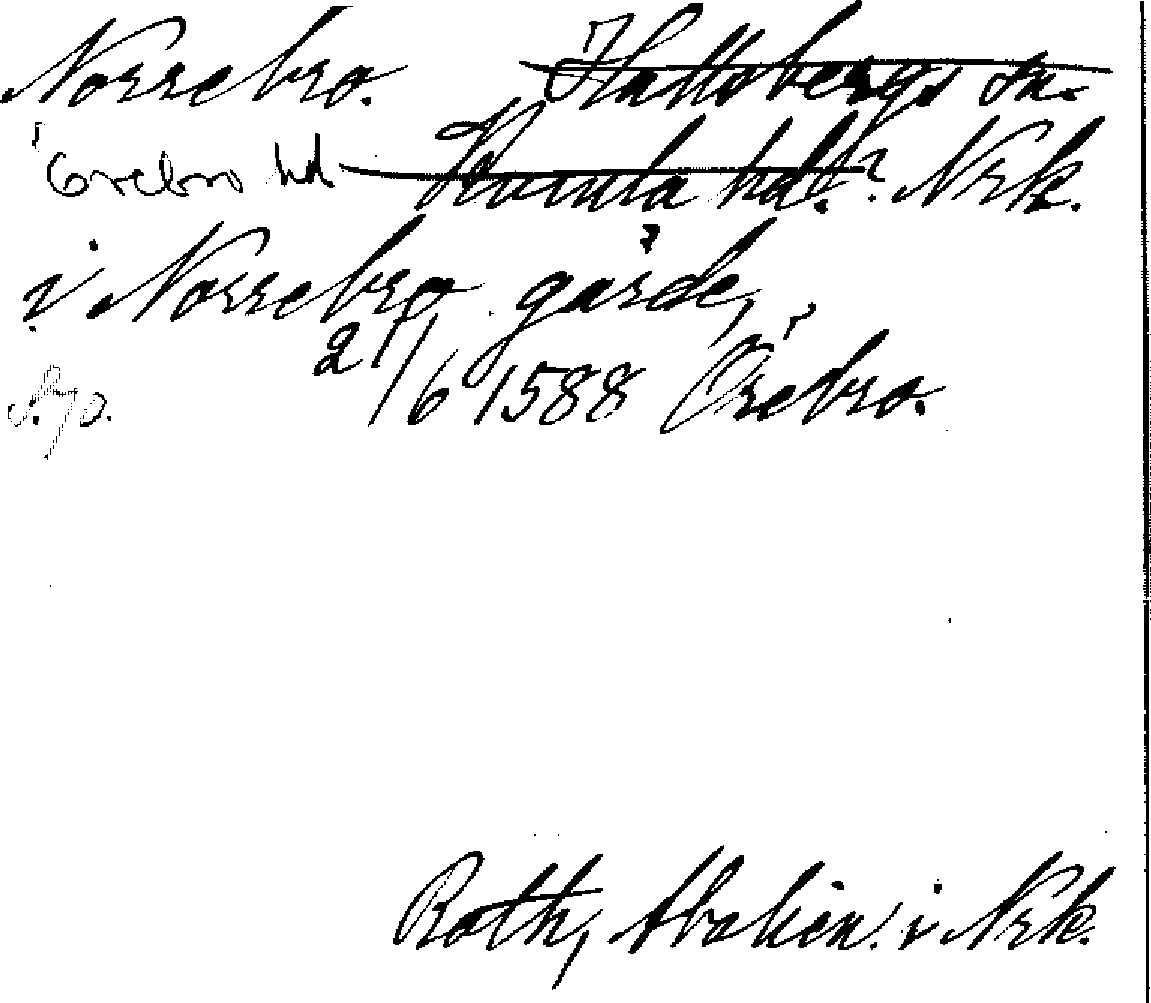 Norrebro. Hallsbergs sn.
Örebro hd Kumla hd.? Nrk.
i Norrebro gärde,
21/6 1588 Örebro.
Roth, i Nrk.